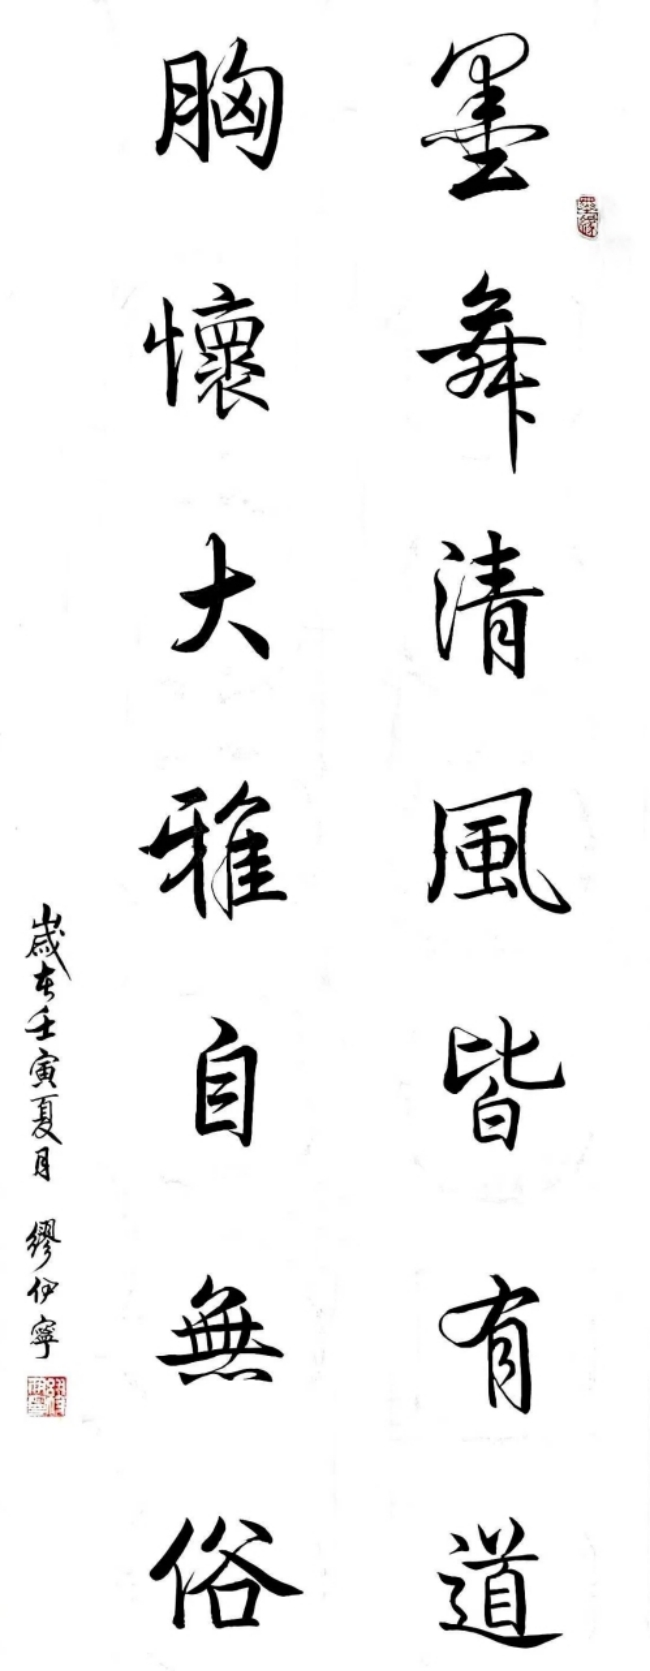 墨舞清風皆有道
胸懷大雅自無俗
歲在壬寅夏月 繆伊寧
墨緣